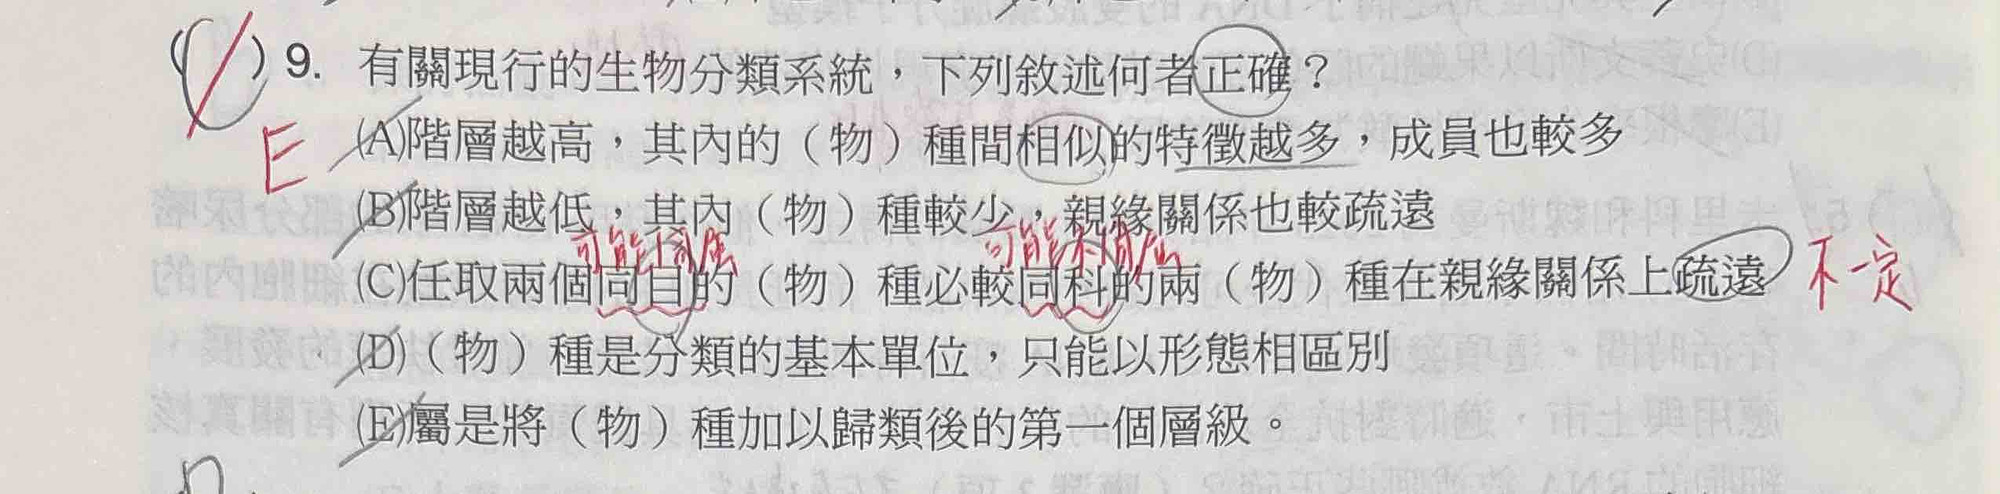 ( ) 9. 有關現行的生物分類系統，下列敘述何者正確？
E
(A)階層越高，其內的（物）種間相似的特徵越多，成員也較多
(B)階層越低，其內（物）種較少，親緣關係也較疏遠
可能同屬 可能不同屬
(C)任取兩個同目的（物）種必較同科的兩（物）種在親緣關係上疏遠 不一定
(D)（物）種是分類的基本單位，只能以形態相區別
(E)屬是將（物）種加以歸類後的第一個層級。